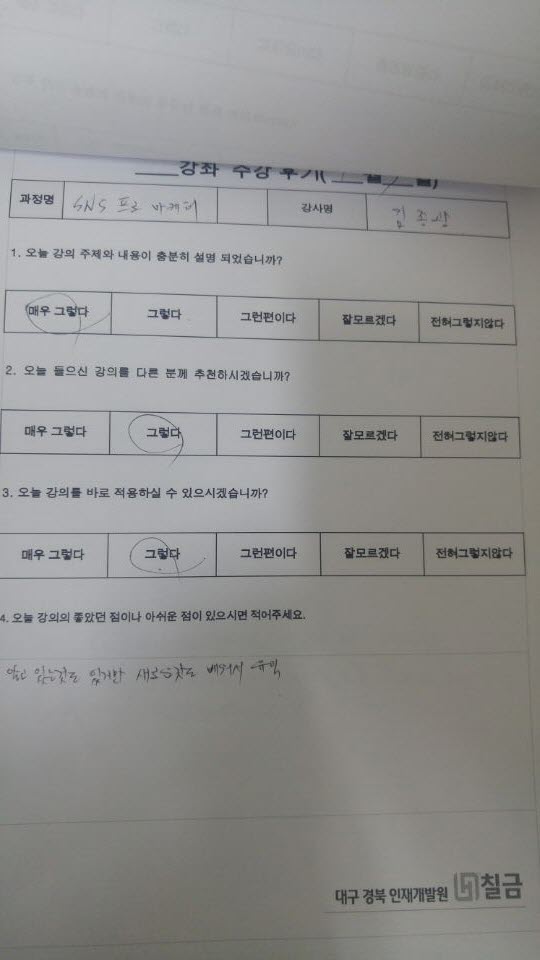 강좌 수강 후기( 월 일)
과정명 SNS 프로 마케터 강사명 김종량
1. 오늘 강의 주제와 내용이 충분히 설명 되었습니까?
매우 그렇다 그렇다 그런편이다 잘모르겠다 전혀그렇지않다
2. 오늘 들으신 강의를 다른 분께 추천하시겠습니까?
매우 그렇다 그렇다 그런편이다 잘모르겠다 전혀그렇지않다
3. 오늘 강의를 바로 적용하실 수 있으시겠습니까?
매우 그렇다 그렇다 그런편이다 잘모르겠다 전혀그렇지않다
4. 오늘 강의의 좋았던 점이나 아쉬운 점이 있으시면 적어주세요.
알고 있는것도 있지만 새로운것도 배워서 유익
대구 경북 인재개발원 칠금